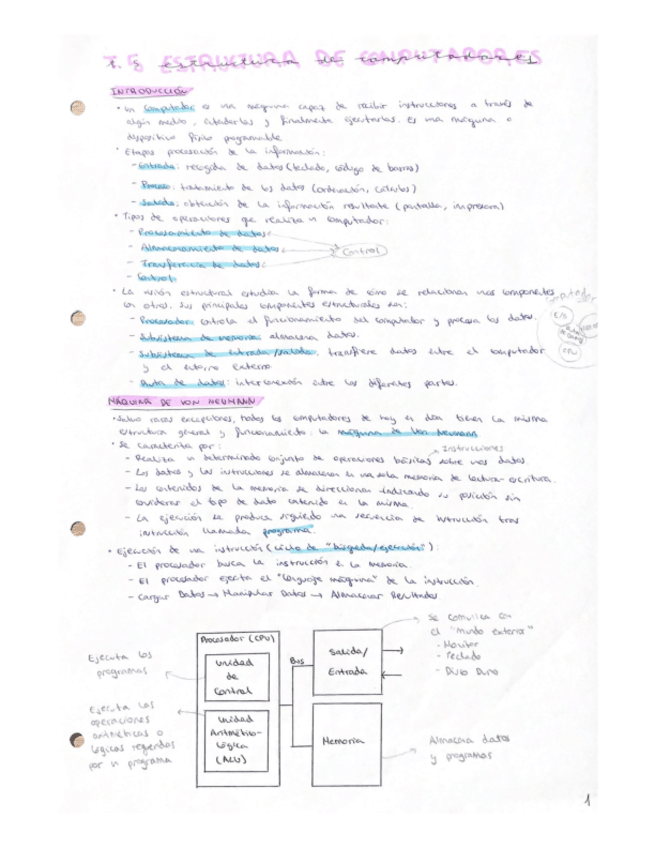 T.5 ESTRUCTURA DE COMPUTADORES
INTRODUCCIÓN
· Un computador es una máquina capaz de recibir instrucciones a través de
algún medio, entenderlas y finalmente ejecutarlas. Es una máquina o
dispositivo físico programable
· Etapas procesación de la información:
- Entrada: recogida de datos (teclado, código de barras)
- Proceso: tratamiento de los datos (ordenación, cálculos)
- Salida: obtención de la información resultante (pantalla, impresora)
· Tipos de operaciones que realiza un computador:
- Procesamiento de datos:
- Almacenamiento de datos:
- Transferencia de datos:
Control
- Control
· La visión estructural estudia la forma de cómo se relacionan unos componentes
con otros. Sus principales componentes estructurales son:
- Procesador: controla el funcionamiento del computador y procesa los datos.
- Subsistema de memoria: almacena datos.
- Subsistema de entrada/salida: transfiere datos entre el computador
y el entorno externo
- Ruta de datos: interconexión entre las diferentes partes.
computador
E/S
CPU
MÁQUINA DE VON NEUMANN
· Salvo raras excepciones, todos los computadores de hoy en día tienen la misma
estructura general y funcionamiento: la máquina de Von Neumann
· Se caracteriza por:
Instrucciones
- Realiza un determinado conjunto de operaciones básicas sobre unos datos.
- Los datos y las instrucciones se almacenan en una sola memoria de lectura-escritura.
- Los contenidos de la memoria se direccionan indicando su posición sin
considerar el tipo de dato contenido en la misma.
- La ejecución se produce siguiendo una secuencia de instrucción tras
instrucción llamada programa.
· Ejecución de una instrucción (ciclo de "búsqueda/ejecución"):
- El procesador busca la instrucción en la memoria.
- El procesador ejecuta el "lenguaje máquina" de la instrucción.
- Cargar Datos → Manipular Datos → Almacenar Resultados
Ejecuta los
programas
Ejecuta las
operaciones
aritméticas o
lógicas requeridas
por un programa
Procesador (CPU)
Unidad
de
Control
Unidad
Aritmético-
Lógica
(ALU)
Bus
Salida/
Entrada
Memoria
Se comunica con
el "mundo exterior"
- Monitor
- Teclado
- Disco Duro
Almacena datos
y programas
1